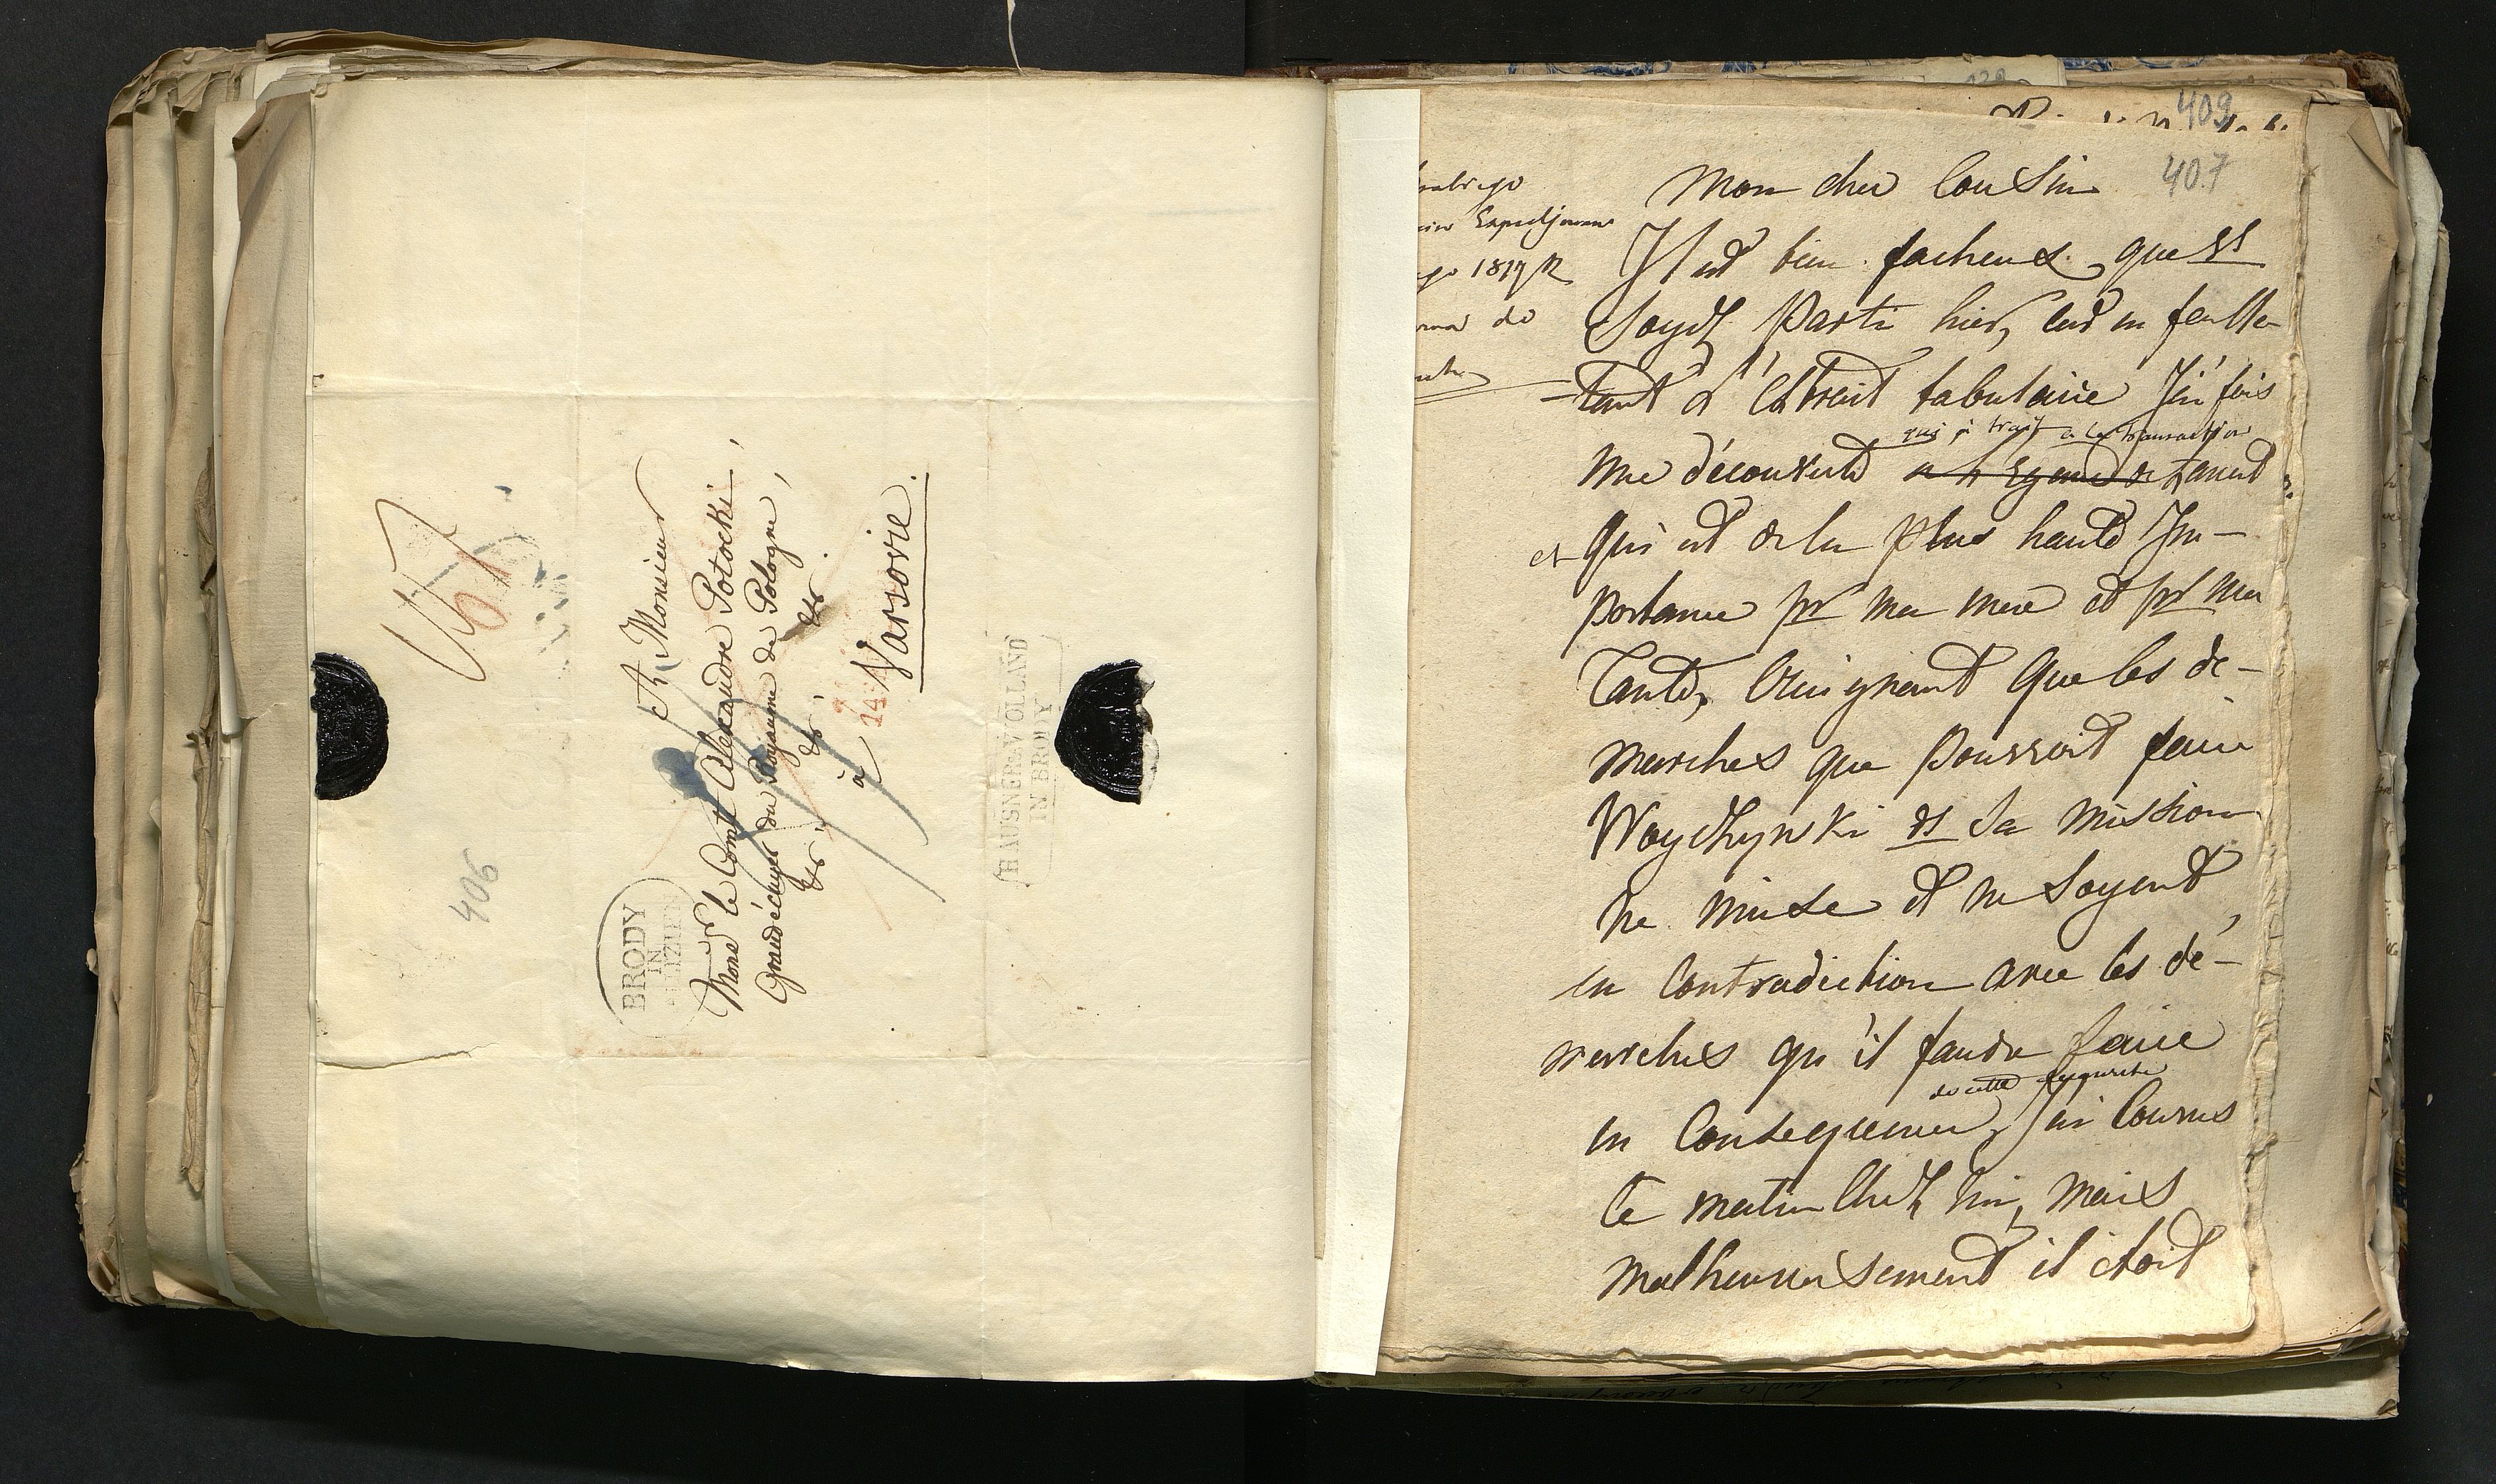 406
A Monsieur
Monsr le Comte Alexandre Potocki,
Grand écuyer du Royaume de Pologne,
&r &r &r
à Varsovie.
BRODY
IN
HAUSNER & VIOLLAND
IN BRODY
409
407
1819
do
Mon cher Cousin
Il est bien facheux que
soyez parti hier, car en feuille-
tant l'extrait tabulaire J'ai fais
qui a trait a la transaction
une découverte
et qui est de la plus haute Im-
portance pr ma mere et pr ma
Tante, Craignant que les de-
marches que pourroit faire
Woyczynski ds sa mission
ne nuise et ne soyent
en contradiction avec les dé-
marches qu'il faudra faire
de cette découverte
en Consequence, J'ai Courrus
ce matin chez lui, mais
malheureusement il étoit